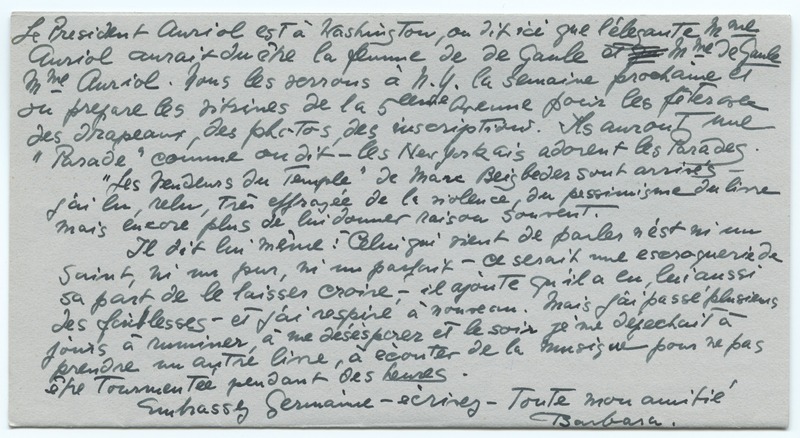 Le President Auriol est à Washington, on dit ici que l'élegante Mme
Auriol aurait du être la femme de de Gaule et Mme de Gaule
Mme Auriol. Nous les verrons à N.Y. la semaine prochaine et
on prepare les vitrines de la 5eme Avenue pour les fêter avec
des drapeaux, des photos, des inscriptions. Ils auront une
"Parade" comme on dit - les New Yorkais adorent les Parades.
"Les Vendeurs du Temple" de Marc Beigbeder sont arrivés -
j'ai lu, relu, très effrayée de la violence, du pessimisme du livre
mais encore plus de lui donner raison souvent.
Il dit lui même : Celui qui vient de parler n'est ni un
saint, ni un pur, ni un parfait - ce serait une escroquerie de
sa part de le laisser croire, - il ajoute qu'il a eu, lui aussi
des faiblesses - et j'ai respiré à nouveau. Mais j'ai passé plusieurs
jours à ruminer, à me désésperer et le soir je me depechait à
prendre un autre livre, à écouter de la musique pour ne pas
être tourmentée pendant des heures.
Embrassez Germaine - écrivez - Toute mon amitié
Barbara.